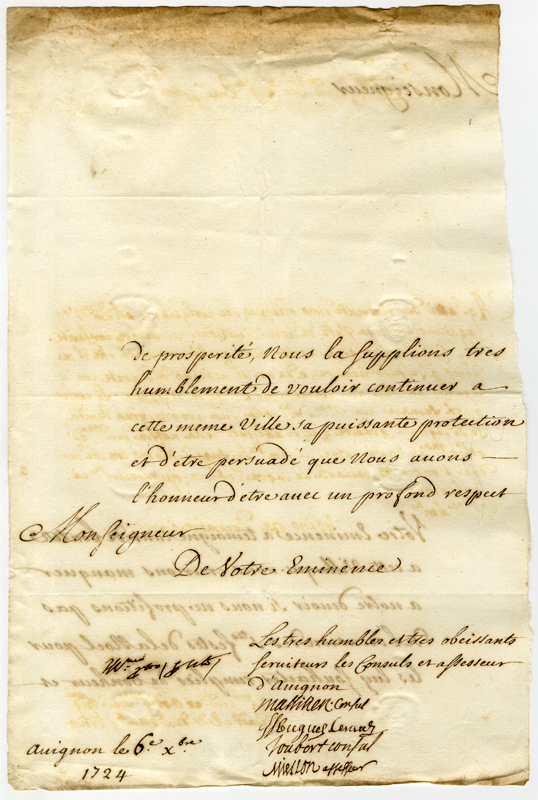 de prosperité, Nous la supplions tres
humblement de vouloir continuer a
cette meme Ville sa puissante protection
et d'être persuadé que Nous auons
l'honneur d'être auec un profond respect
Monseigneur
De Votre Eminence
Les tres humbles et tres obeissants
seruiteurs les Consuls et assesseur
d'Auignon
consul
Joubert consul
assesseur
Auignon le 6.e xbre
1724